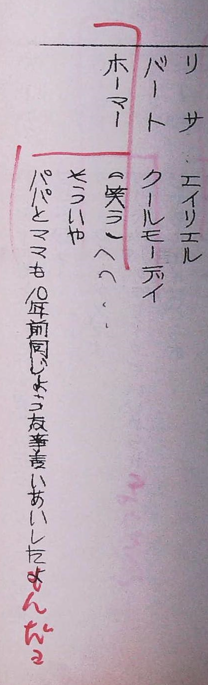 リサ エイリエル
バート クールモーデイ
ホーマー （笑う）へへ・・
そういや
パパとママも10年前同じような事言いあいしたよ
もんだ